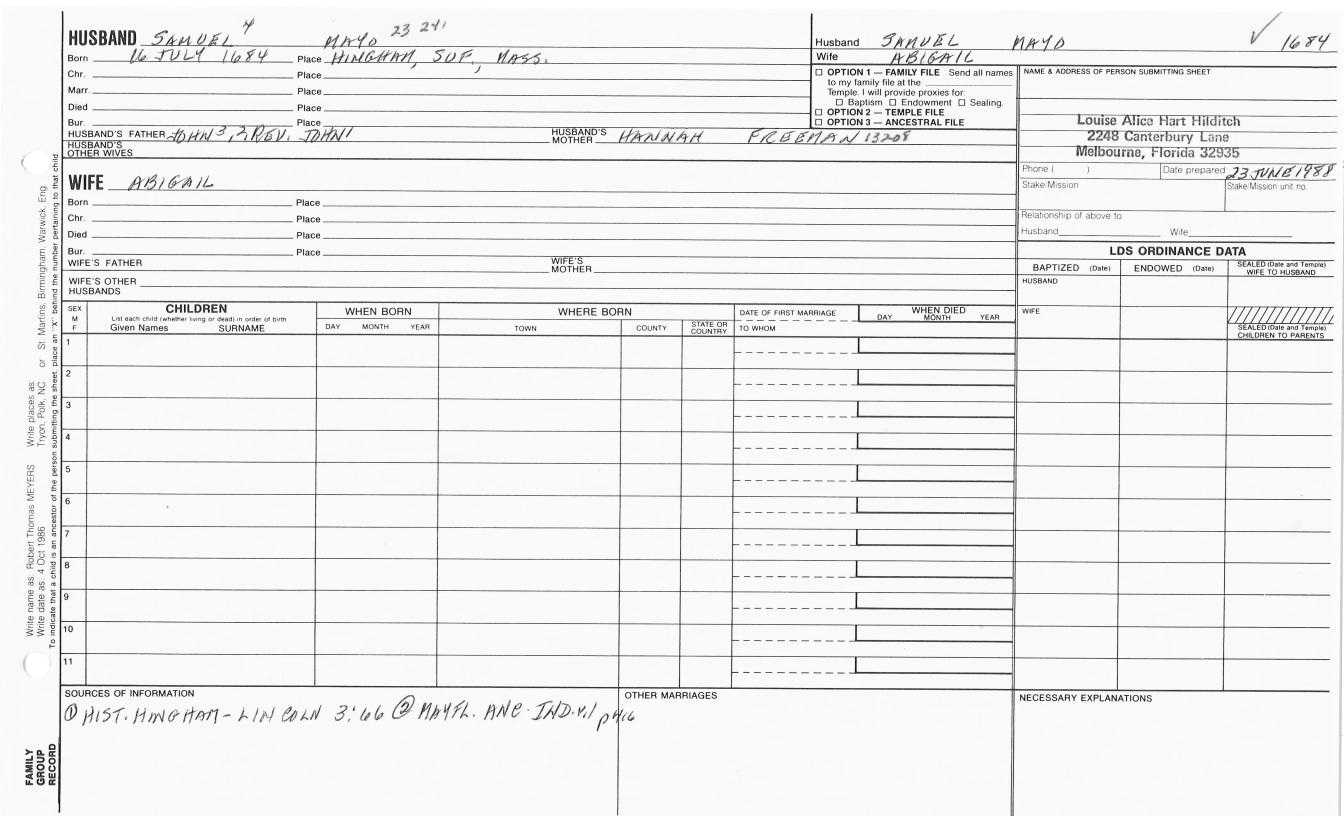 HUSBAND SAMUEL 4 MAYO 23 241
Born 16 JULY 1684 Place HINGHAM, SUF, MASS.
Chr. Place
Marr. Place
Died Place
Bur. Place
HUSBAND'S FATHER JOHN 3, 2, REV. JOHN 1 HUSBAND'S MOTHER HANNAH FREEMAN 13208
HUSBAND'S OTHER WIVES
Husband SAMUEL MAYO ✓ 1684
Wife ABIGAIL
☐ OPTION 1 — FAMILY FILE Send all names
to my family file at the
Temple. I will provide proxies for:
☐ Baptism ☐ Endowment ☐ Sealing.
☐ OPTION 2 — TEMPLE FILE
☐ OPTION 3 — ANCESTRAL FILE
NAME & ADDRESS OF PERSON SUBMITTING SHEET
Louise Alice Hart Hilditch
2248 Canterbury Lane
Melbourne, Florida 32935
Phone ( ) Date prepared 23 JUNE 1988
Stake/Mission Stake/Mission unit no.
Relationship of above to
Husband Wife
WIFE ABIGAIL
Born Place
Chr. Place
Died Place
Bur. Place
WIFE'S FATHER WIFE'S MOTHER
WIFE'S OTHER HUSBANDS
LDS ORDINANCE DATA
BAPTIZED (Date) ENDOWED (Date) SEALED (Date and Temple) WIFE TO HUSBAND
HUSBAND
WIFE
SEALED (Date and Temple) CHILDREN TO PARENTS
SEX M F
CHILDREN
List each child (whether living or dead) in order of birth
Given Names SURNAME
WHEN BORN
DAY MONTH YEAR
WHERE BORN
TOWN COUNTY STATE OR COUNTRY
DATE OF FIRST MARRIAGE
TO WHOM
WHEN DIED
DAY MONTH YEAR
1
2
3
4
5
6
7
8
9
10
11
SOURCES OF INFORMATION
① HIST. HINGHAM - LINCOLN 3:66 ② MAYFL. ANC. IND. v.1 p416
OTHER MARRIAGES
NECESSARY EXPLANATIONS
Write name as: Robert Thomas MEYERS Write places as: Tryon, Polk, NC or St. Martins, Birmingham, Warwick, Eng.
Write date as: 4 Oct 1986
To indicate that a child is an ancestor of the person submitting the sheet, place an "X" behind the number pertaining to that child
FAMILY
GROUP
RECORD